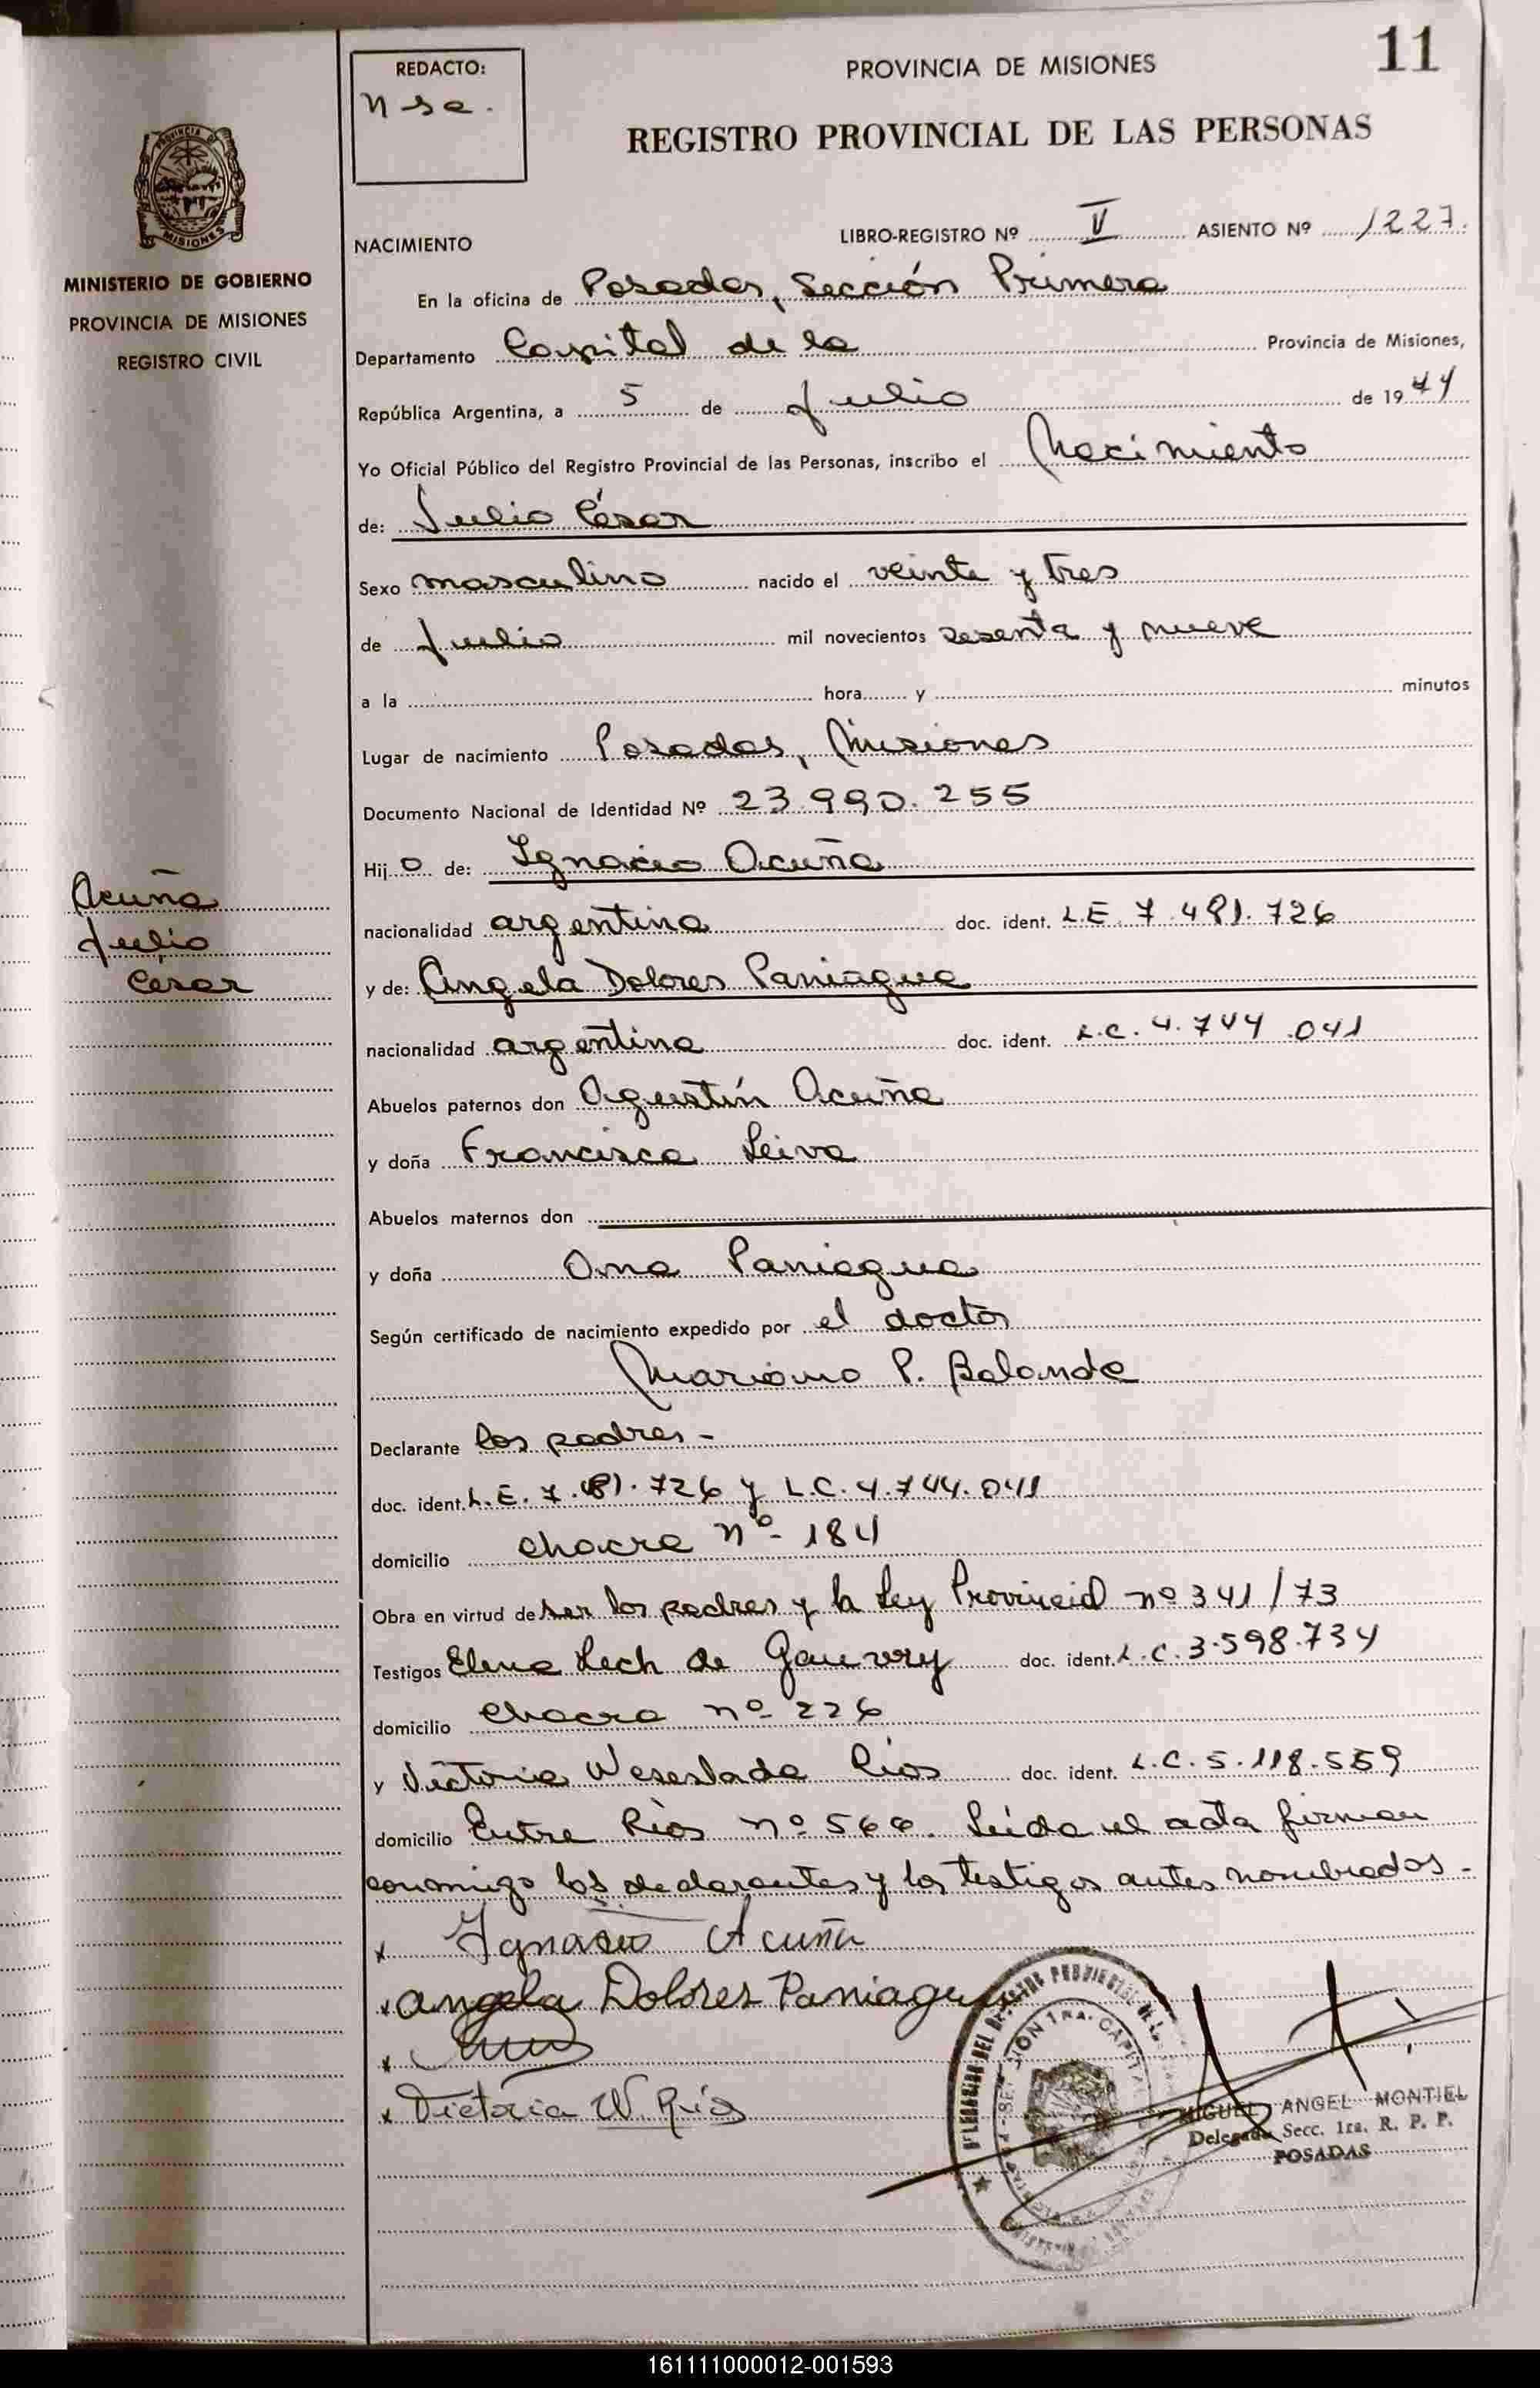 11
REDACTO:
nse.
PROVINCIA DE MISIONES
REGISTRO PROVINCIAL DE LAS PERSONAS
PROVINCIA DE
MISIONES
MINISTERIO DE GOBIERNO
PROVINCIA DE MISIONES
REGISTRO CIVIL
NACIMIENTO
LIBRO-REGISTRO Nº V ASIENTO Nº 1227.
En la oficina de Posadas, Sección Primera
Departamento Capital de la Provincia de Misiones,
República Argentina, a 5 de Julio de 1974
Yo Oficial Público del Registro Provincial de las Personas, inscribo el Nacimiento
de: Julio César
Sexo masculino nacido el veinte y tres
de Julio mil novecientos sesenta y nueve
a la hora y minutos
Lugar de nacimiento Posadas, Misiones
Documento Nacional de Identidad Nº 23.990.255
Hijo de: Ignacio Acuña
Acuña
Julio
César
nacionalidad argentina doc. ident. L.E. 7.481.726
y de: Angela Dolores Paniagua
nacionalidad argentina doc. ident. L.C. 4.744.041
Abuelos paternos don Agustín Acuña
y doña Francisca Leiva
Abuelos maternos don
y doña Ana Paniagua
Según certificado de nacimiento expedido por el doctor
Mariano P. Balande
Declarante los padres -
doc. ident. L.E. 7.481.726 y L.C. 4.744.041
domicilio chacra nº 184
Obra en virtud de ser los padres y la Ley Provincial nº 341/73
Testigos Elena Lech de Gauvry doc. ident. L.C. 3.598.734
domicilio chacra nº 226
y Victoria Weseslada Rios doc. ident. L.C. 5.118.559
domicilio Entre Rios nº 566. Leída el acta firman
conmigo los declarantes y los testigos antes nombrados -
x Ignacio Acuña
x Angela Dolores Paniagua
x
x Victoria W. Ríos
MIGUEL ANGEL MONTIEL
Delegado Secc. 1ra. R. P. P.
POSADAS
161111000012-001593